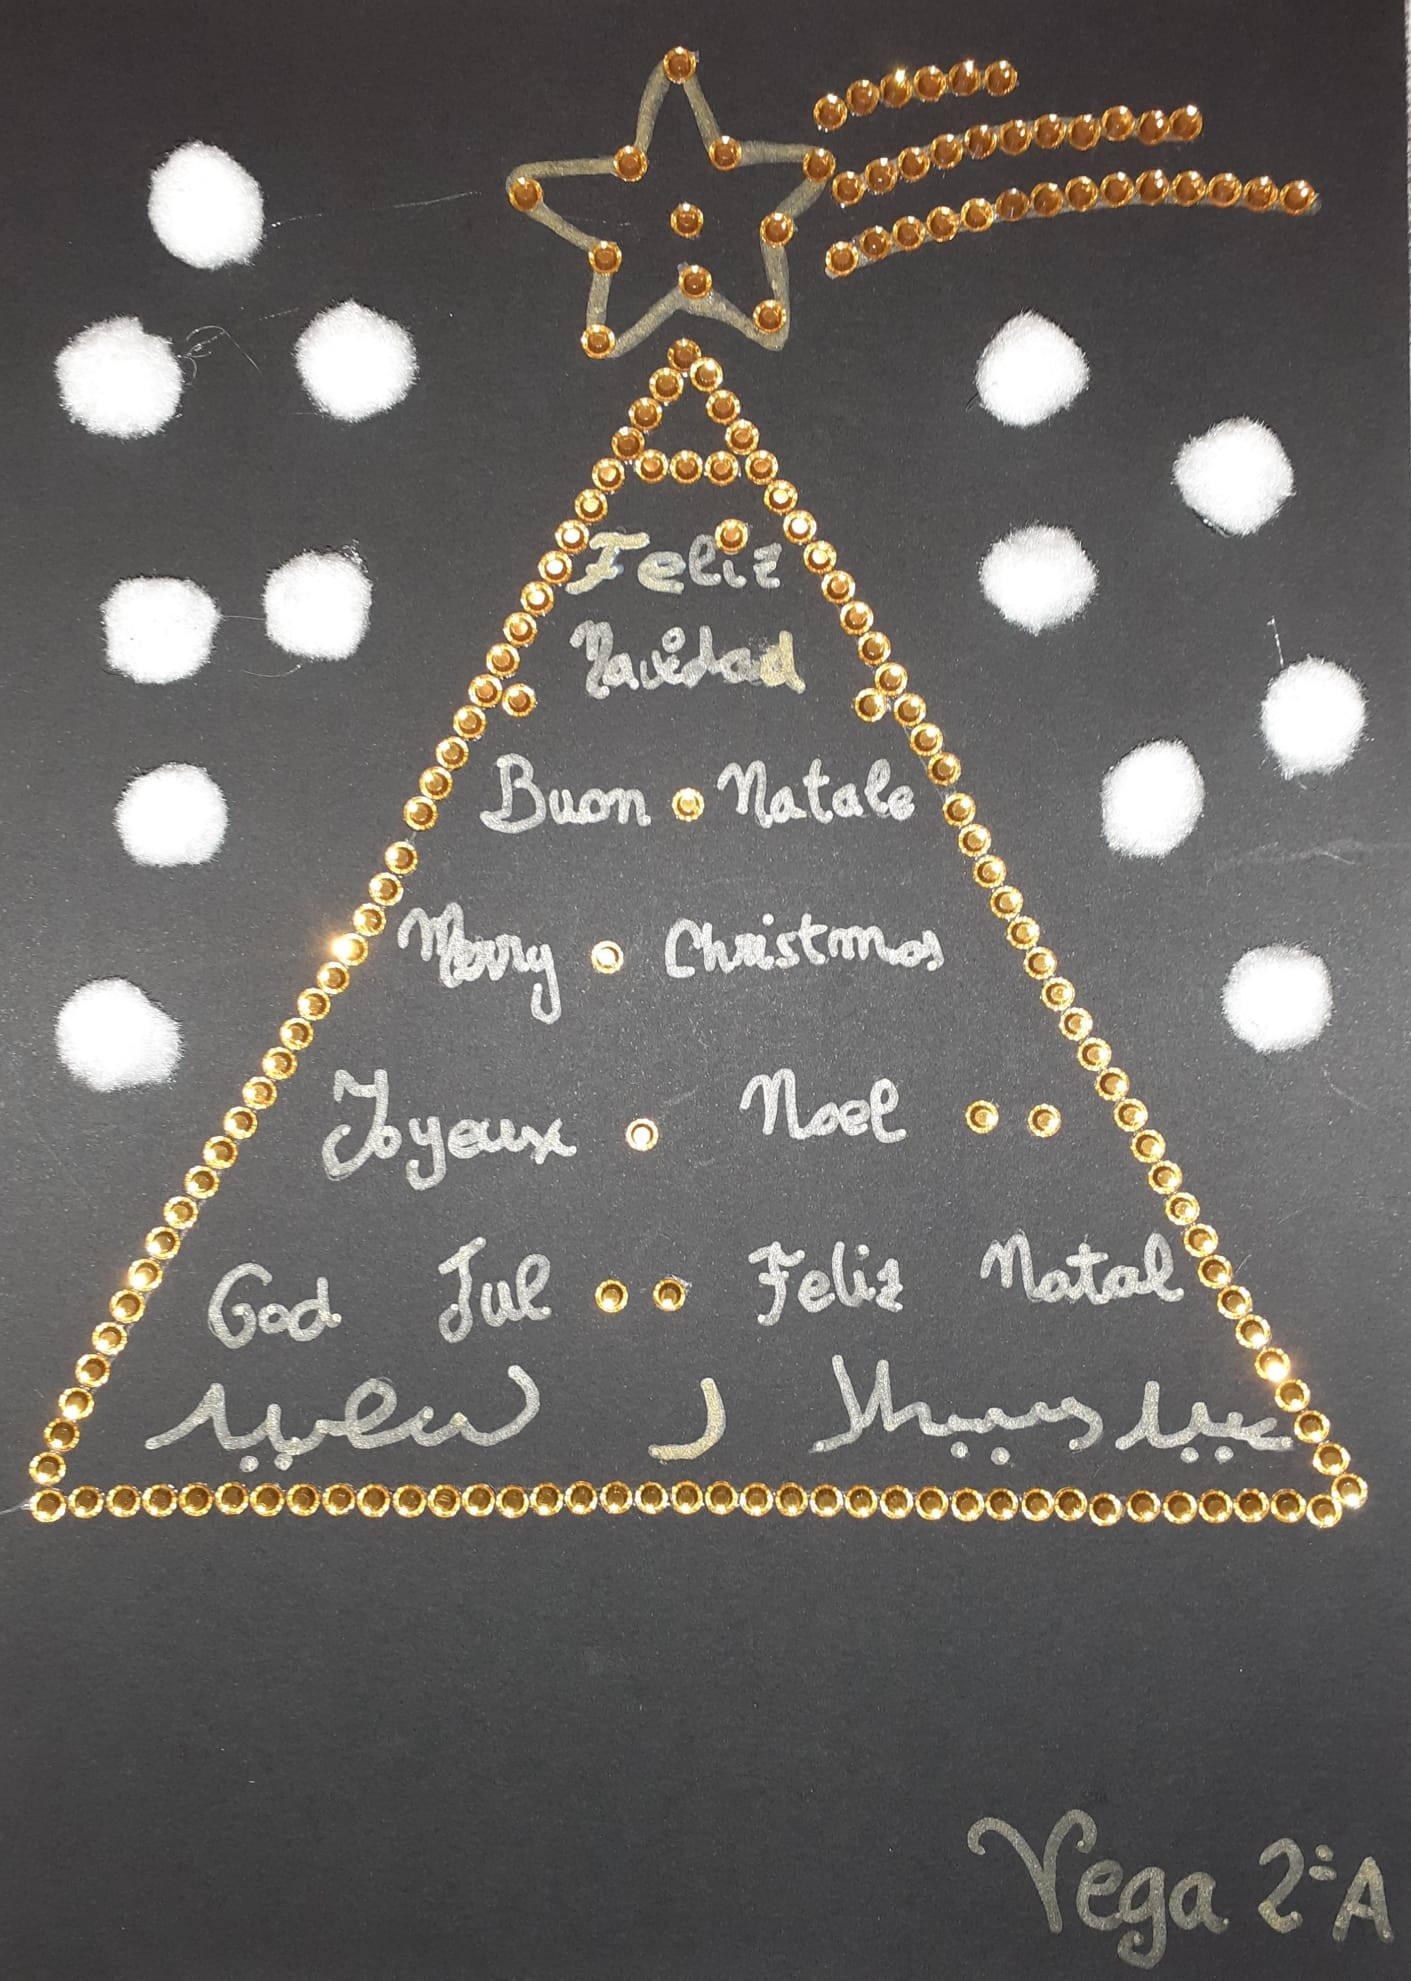 Feliz
Navidad
Buon Natale
Merry Christmas
Joyeux Noel
God Jul Feliz Natal
عيد ميلاد سعيد
Vega 2ºA